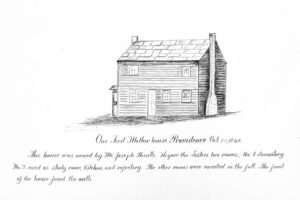 Our First Mother house, Providence, Oct. 1840
This house was owned by Mr Joseph Thralls. He gave the Sisters two rooms; No. 1 dormitory
No. 2, used as study room, kitchen, and refectory. The other rooms were vacated in the fall. The front
of the house faced the north.